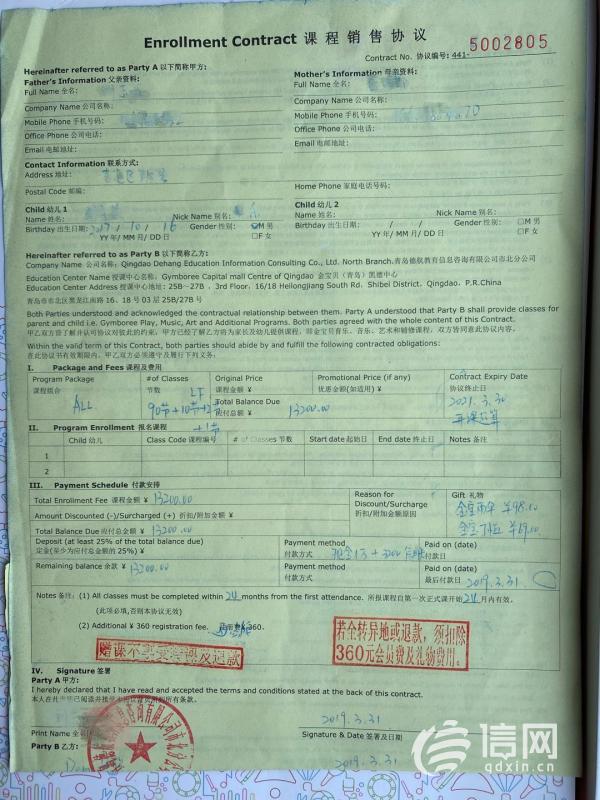 Enrollment Contract 课程销售协议
Contract No. 协议编号: 441- 5002805
Hereinafter referred to as Party A 以下简称甲方:
Father's Information 父亲资料: Mother's Information 母亲资料:
Full Name 全名: Full Name 全名:
Company Name 公司名称: Company Name 公司名称:
Mobile Phone 手机号码: Mobile Phone 手机号码:
Office Phone 公司电话: Office Phone 公司电话:
Email 电邮地址: Email 电邮地址:
Contact Information 联系方式:
Address 地址:
Postal Code 邮编: Home Phone 家庭电话号码:
Child 幼儿 1 Child 幼儿 2
Name 姓名: Nick Name 别名: Name 姓名: Nick Name 别名:
Birthday 出生日期: 2017/10/16 Gender 性别: M 男 Birthday 出生日期: / / Gender 性别: □M 男
YY 年/ MM 月/ DD 日 □F 女 YY 年/ MM 月/ DD 日 □F 女
Hereinafter referred to as Party B 以下简称乙方:
Company Name 公司名称: Qingdao Dehang Education Information Consulting Co., Ltd. North Branch.青岛德航教育信息咨询有限公司市北分公司
Education Center Name 授课中心名称: Gymboree Capital mall Centre of Qingdao 金宝贝（青岛）凯德中心
Education Center Address 授课中心地址: 25B－27B , 3rd Floor, 16/18 Heilongjiang South Rd. Shibei District, Qingdao. P.R.China
青岛市市北区黑龙江南路 16、18 号 03 层 25B/27B 号
Both Parties understood and acknowledged the contractual relationship between them. Party A understood that Party B shall provide classes for
parent and child i.e. Gymboree Play, Music, Art and Additional Programs. Both parties agreed with the whole content of this Contract.
甲乙双方皆了解并认可协议对彼此的约束，甲方已经了解乙方将为家长及幼儿提供课程，即金宝贝育乐、音乐、艺术和辅修课程，双方皆同意此协议内容。
Within the valid term of this Contract, both parties should abide by and fulfill the following contracted obligations:
在此协议书有效期限内，甲乙双方必须遵守及履行下列义务:
I. Package and Fees 课程及费用
Program Package # of Classes Original Price Promotional Price (if any) Contract Expiry Date
课程组合 节数 课程金额 ¥ 优惠金额(如适用) ¥ 协议终止日
ALL 90节+10节+12节 Total Balance Due 2021.3.30
+1节 应付总额 ¥ 13200.00
II. Program Enrollment 报名课程
Child 幼儿 Class Code 课程编号 # of Classes 节数 Start date 起始日 End date 终止日 Notes 备注
1
2
III. Payment Schedule 付款安排
Total Enrollment Fee 课程金额 ¥ 13200.00 Reason for Gift 礼物
Amount Discounted (-)/Surcharged (+) 折扣/附加金额 ¥ Discount/Surcharge ¥98.00
Total Balance Due 应付总金额 ¥ 13200.00 折扣/附加金额原因 ¥69.00
Deposit (at least 25% of the total balance due) Payment method Paid on (date)
定金(至少为应付总金额的 25%) ¥ 付款方式 付款日
Remaining balance 余款 ¥ 13200.00 Payment method Paid on (date)
付款方式 最后付款日 2019.3.31
Notes 备注: (1) All classes must be completed within 24 months from the first attendance. 所报课程自第一次正式课开始 24 月内有效。
(此项必填,否则本协议无效)
(2) Additional ¥ 360 registration fee. 360.
赠课不享受转让及退款
若全转异地或退款，须扣除
360元会员费及礼物费用。
IV. Signature 签署
Party A 甲方:
I hereby declared that I have read and accepted the terms and conditions stated at the back of this contract.
Print Name 2019.3.31
Signature & Date 签署及日期
Party B 乙方:
2019.3.31
信网
qdxin.cn